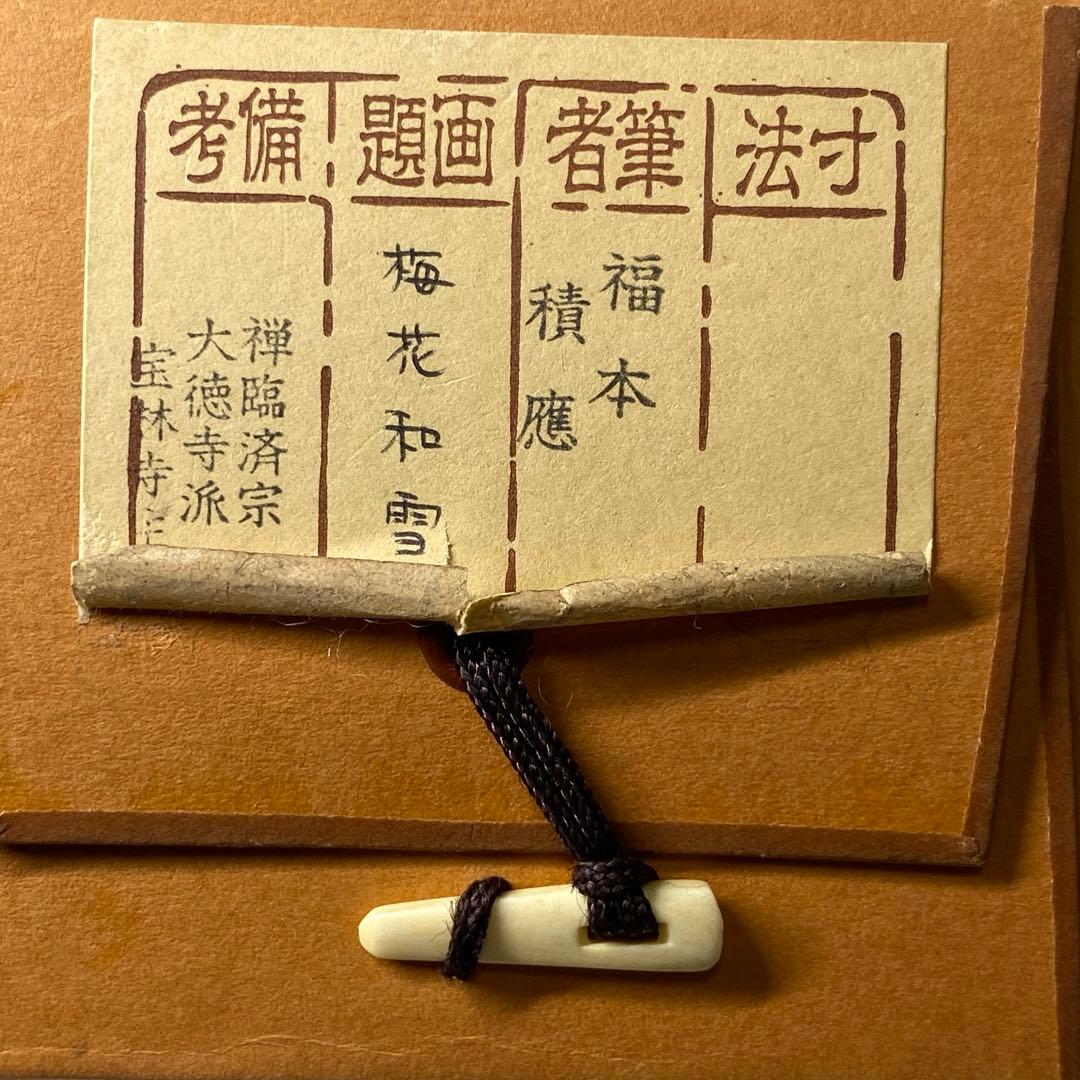 寸法
筆者
福本
積應
画題
梅花和雪
備考
禅臨済宗
大徳寺派
宝林寺